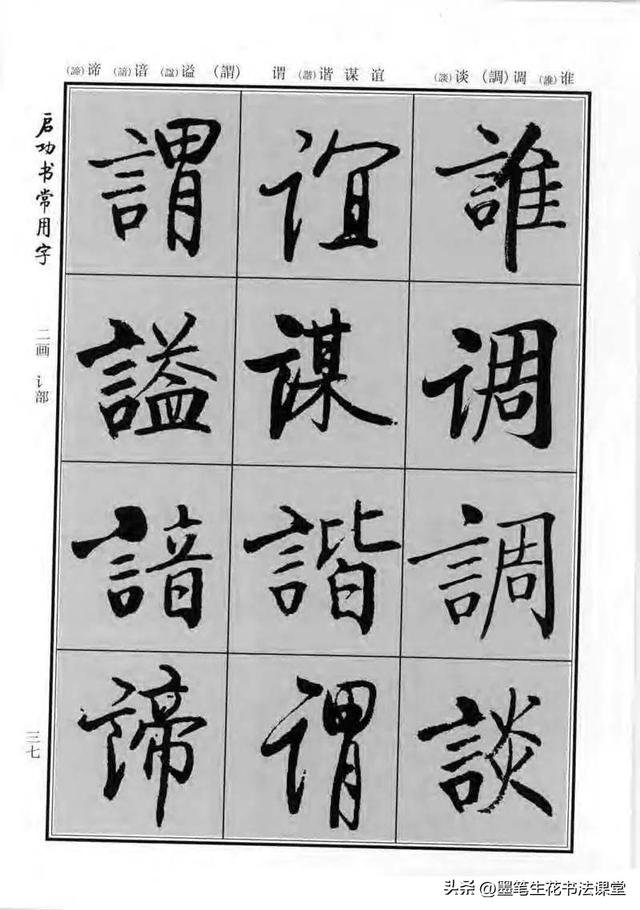 (諦)谛 (諳)谙 (謚)谥 (謂) 谓 (諧)谐 谋 谊 (談)谈 (調)调 (誰)谁
誰调調談
谊谋諧谓
謂謚諳谛
启功书常用字
二画 讠部
三七
头条 @墨笔生花书法课堂